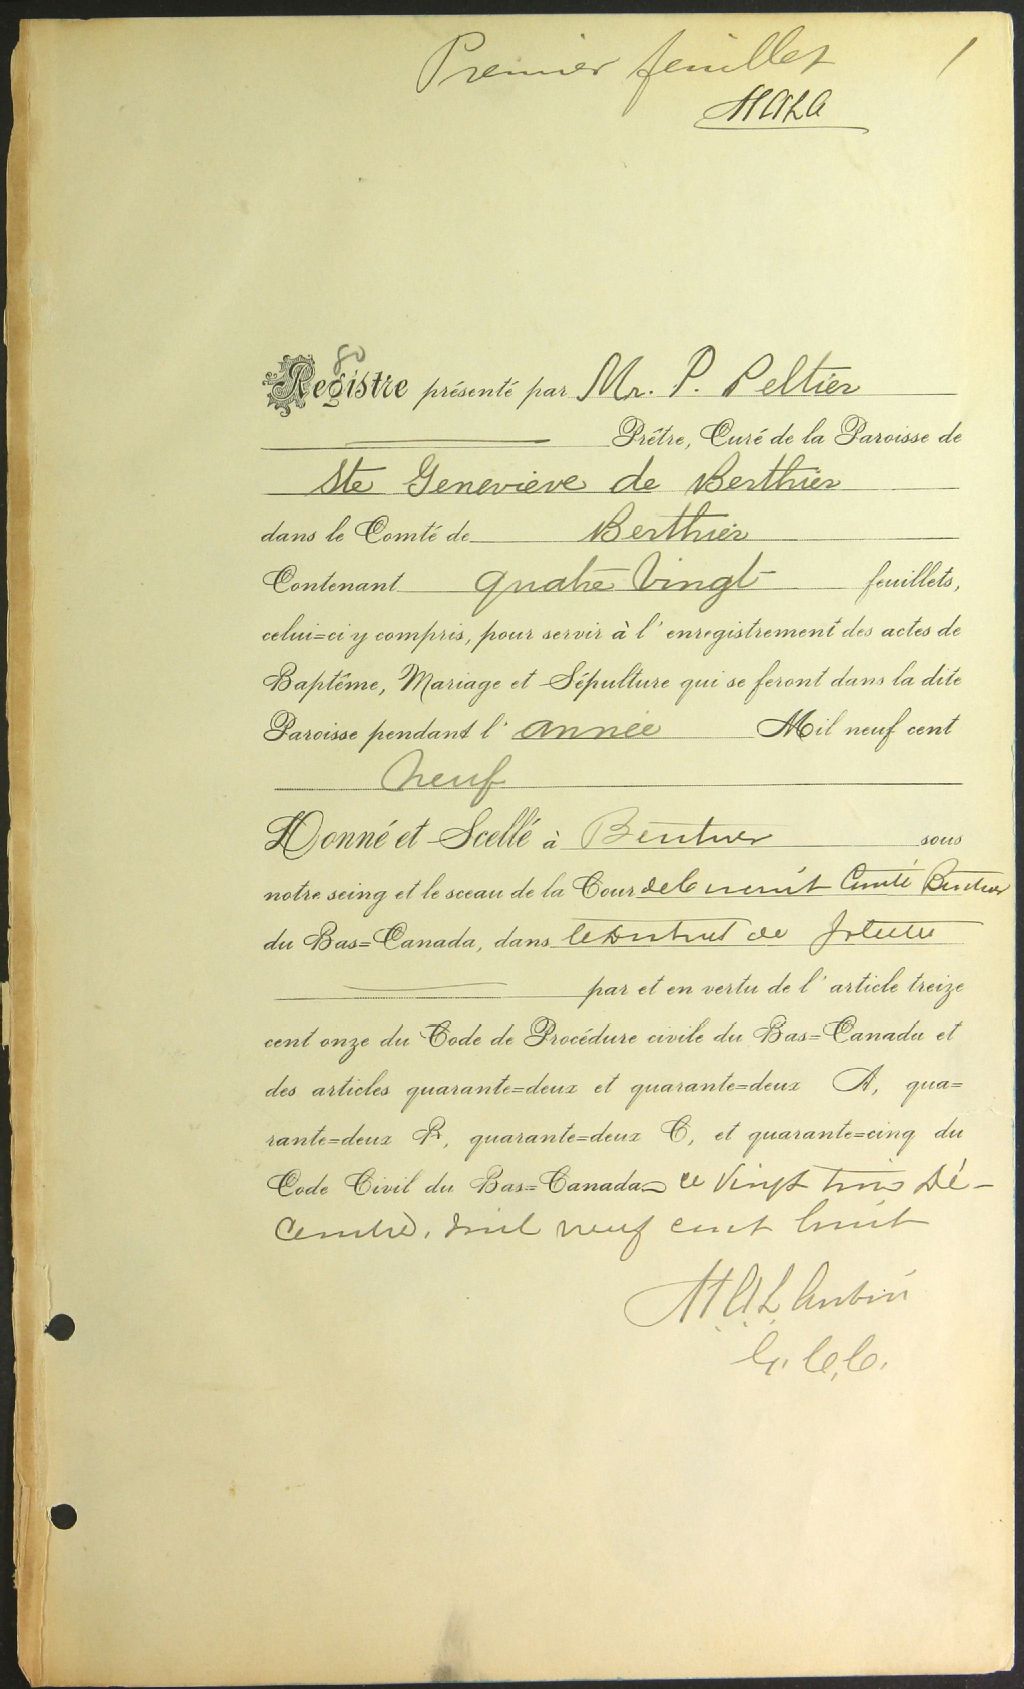 Premier feuillet 1
MALA
80
Registre présenté par Mr. P. Peltier
Prêtre, Curé de la Paroisse de
Ste Geneviève de Berthier
dans le Comté de Berthier
Contenant quatre vingt feuillets,
celui=ci y compris, pour servir à l'enregistrement des actes de
Baptême, Mariage et Sépulture qui se feront dans la dite
Paroisse pendant l'année Mil neuf cent
neuf
Donné et Scellé à Berthier sous
notre seing et le sceau de la Cour de Circuit Comté Berthier
du Bas=Canada, dans le District de Joliette
par et en vertu de l'article treize
cent onze du Code de Procédure civile du Bas=Canada et
des articles quarante=deux et quarante=deux A, qua=
rante=deux B, quarante=deux C, et quarante=cinq du
Code Civil du Bas=Canada ce Vingt trois Dé-
cembre, mil neuf cent huit
M A L Aubin
G. C. C.